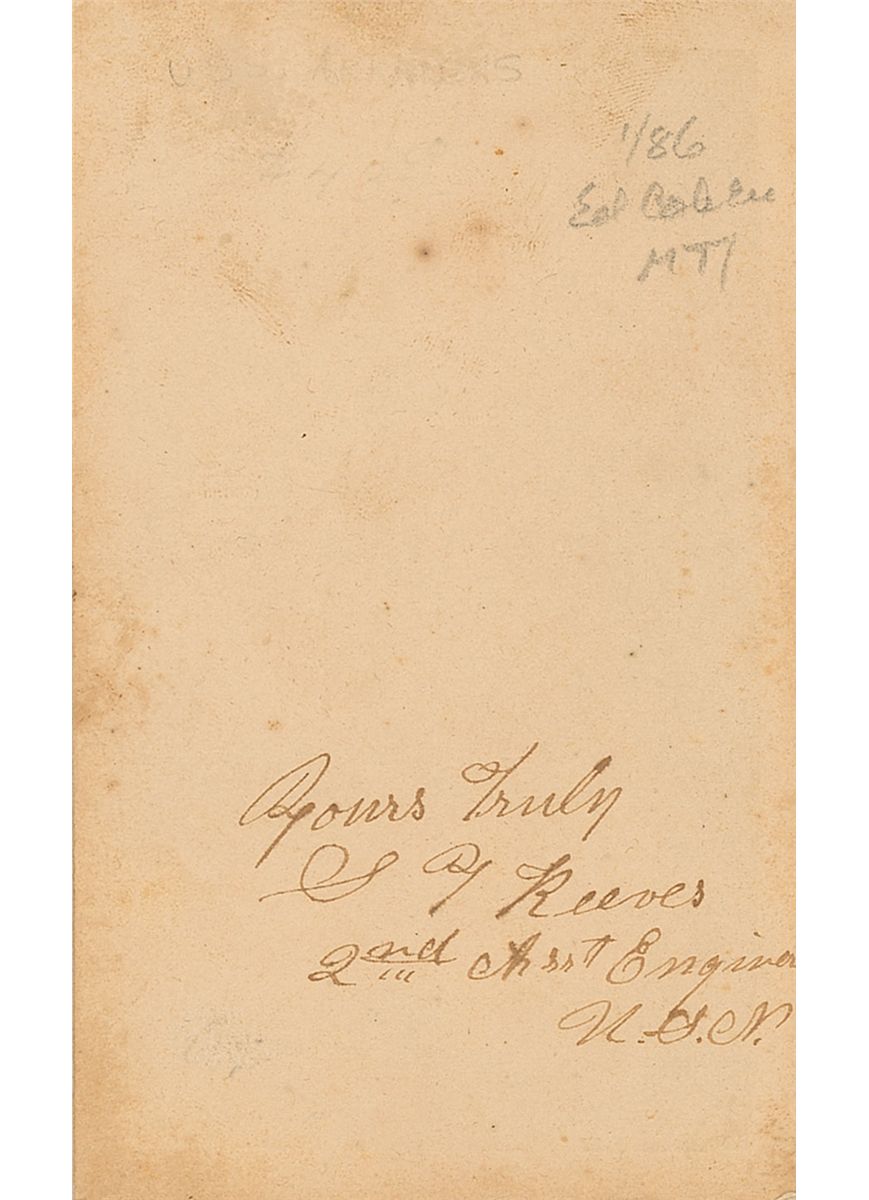 1/86
Ed
MTI
Yours Truly
S Y Reeves
2nd Asst Engineer
U.S.N.